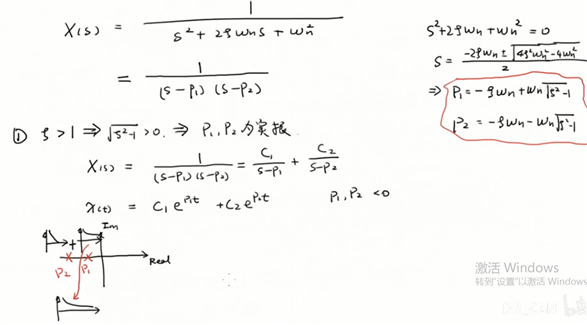 X(s) = 1 / (s² + 2ζωₙs + ωₙ²)
= 1 / ((s-p₁)(s-p₂))
s²+2ζωₙ+ωₙ² = 0
s = (-2ζωₙ ± √(4ζ²ωₙ²-4ωₙ²)) / 2
⇒ p₁ = -ζωₙ + ωₙ√(ζ²-1)
p₂ = -ζωₙ - ωₙ√(ζ²-1)
① ζ > 1 ⇒ √(ζ²-1) > 0. ⇒ P₁, P₂ 为实根.
X(s) = 1 / ((s-p₁)(s-p₂)) = C₁/(s-p₁) + C₂/(s-p₂)
x(t) = C₁e^(p₁t) + C₂e^(p₂t) P₁, P₂ < 0
Im
+
Real
P₂ P₁
激活 Windows
转到"设置"以激活 Windows